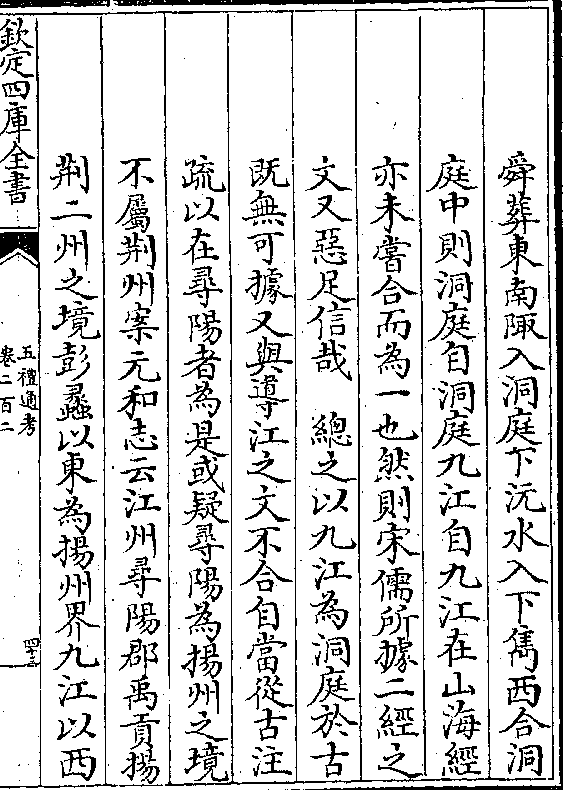 舜葬東南陬入洞庭下沅水入下雋西合洞
庭中則洞庭自洞庭九江自九江在山海經
亦未嘗合而為一也然則宋儒所據二經之
文又惡足信哉　總之以九江為洞庭於古
既無可據又與導江之文不合自當從古注
疏以在尋陽者為是或疑尋陽為揚州之境
不屬荆州案元和志云江州尋陽郡禹貢揚
荆二州之境彭蠡以東為揚州界九江以西
欽定四庫全書
五禮通考
卷二百二
四十三